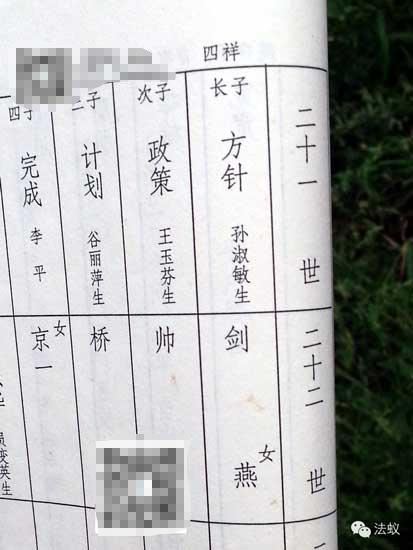 四祥
二十一世
长子
方针
孙淑敏生
次子
政策
王玉芬生
三子
计划
谷丽萍生
四子
完成
李平
二十二世
剑
女
燕
帅
桥
女
京一
变英生
法蚁